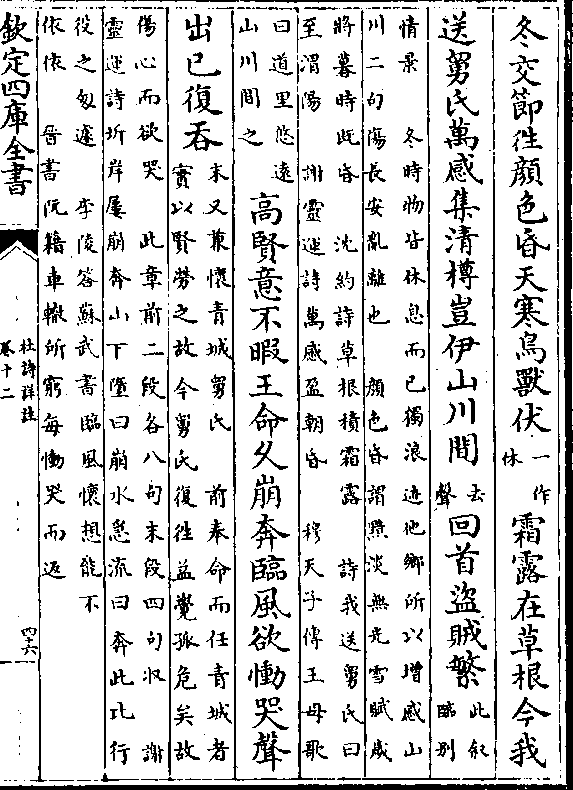 冬交節往顔色昏天寒鳥獸伏一作休霜露在草根今我
送舅氏萬感集清樽豈伊山川間去聲回首盜賊繁此叙臨別
情景　冬時物皆休息而已獨浪迹他鄉所以增感山
川二句傷長安亂離也　顔色昏謂黯淡無光雪賦歲
將暮時既昏　沈約詩草根積霜露　詩我送舅氏曰
至渭陽　謝靈運詩萬感盈朝昏　穆天子傳王母歌
曰道里悠遠
山川間之
高賢意不暇王命久崩奔臨風欲慟哭聲
出已復吞
末又兼懷青城舅氏　前奉命而任青城者
實以賢勞之故今舅氏復往益覺孤危矣故
傷心而欲哭　此章前二段各八句末段四句收　謝
靈運詩圻岸屢崩奔山下墮曰崩水急流曰奔此比行
役之怱遽　李陵答蘇武書臨風懷想能不
依依　晉書阮籍車轍所窮每慟哭而返
欽定四庫全書
杜詩詳註
卷十二
四六